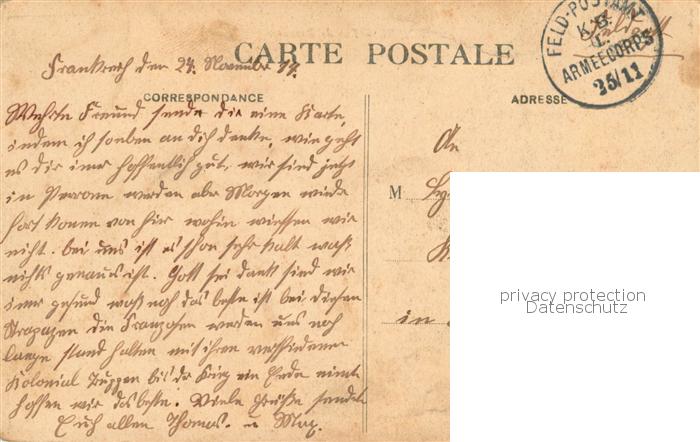 FELD-POSTAMT
K.B.
I.
ARMEECORPS
25/11
CARTE POSTALE
Frankreich den 24. November 14.
CORRESPONDANCE
ADRESSE
Werthe Freund sende dir eine Karte,
indem ich soeben an dich denke, wie geht
es dir imer hoffentlich gut, wir sind jetzt
in Peronne werden aber Morgen wieder
fort komen von hier wohin wiessen wir
nicht. bei uns ist es schon sehr kalt was
nichts genaues ist. Gott sei dank sind wir
imer gesund was noch das beste ist bei diesen
Strapazen die Franzosen werden uns noch
lange stand halten mit ihren verschiedenen
Kolonial Truppen bis der Krieg ein Ende nimt
hoffen wir das beste. Viele Grüße sendet
Euch allen Thomas. u Max.
An
M
in
privacy protection
Datenschutz